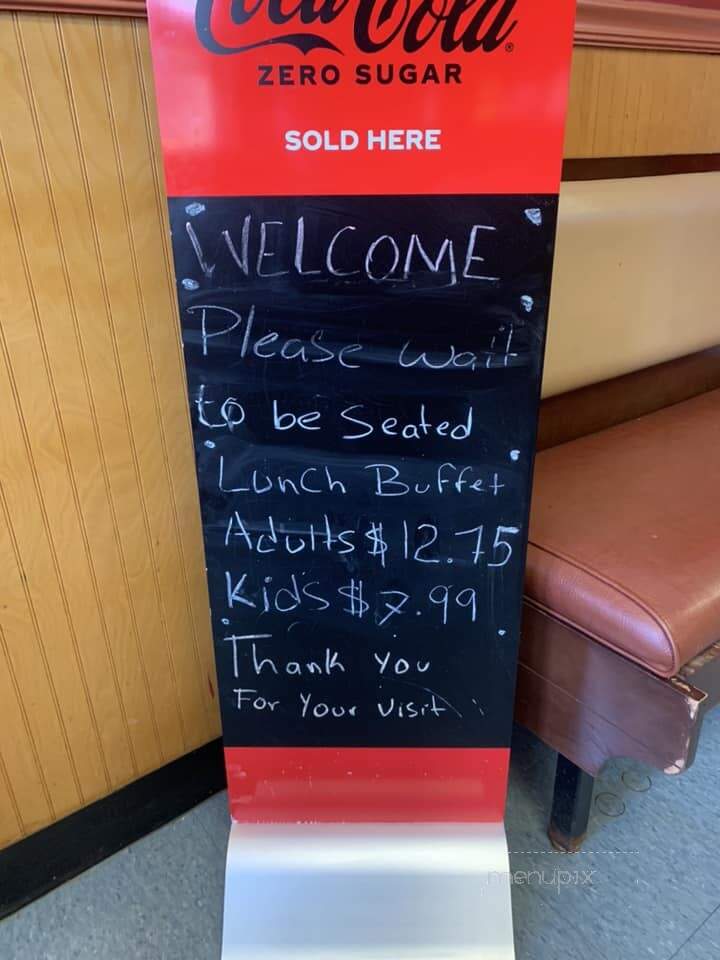 Coca-Cola®
ZERO SUGAR
SOLD HERE
WELCOME
Please wait
to be Seated
Lunch Buffet
Adults $12.75
Kids $7.99
Thank you
For Your Visit
menupix